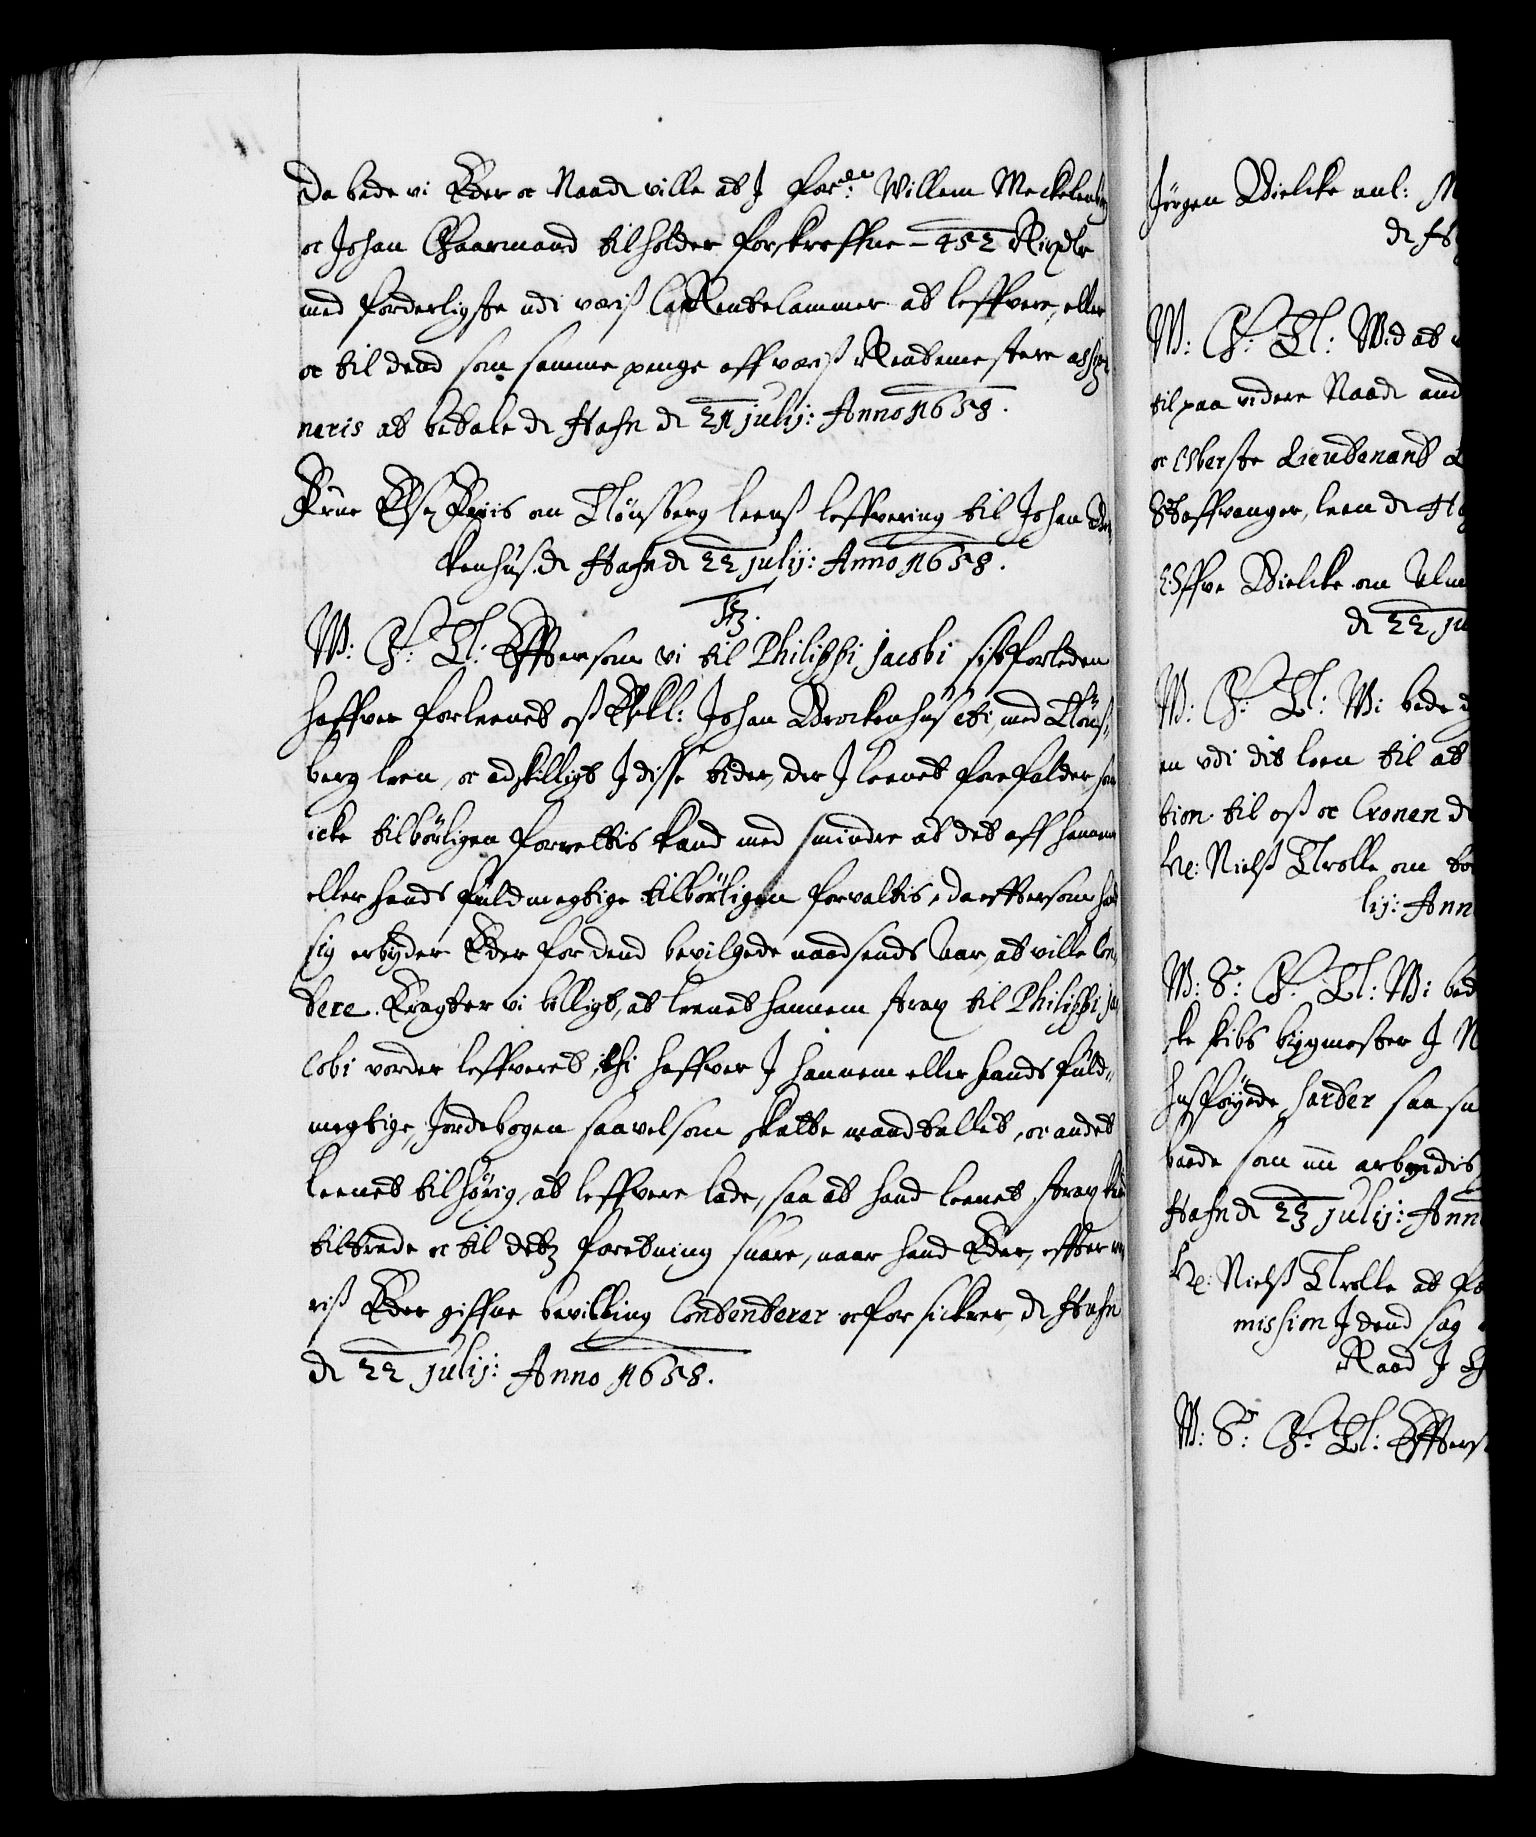 Da bede vi Eder oc Naad: ville at J Forde: Willem Meckelenb
oc Johan Gaarmand tilholder forskreffne - 452 Rixdlr
med forderligste udi voris Rentecammer at leffvere, eller
oc til dend som samme penge aff voris Rentemestere assig
neris at betale de Hafn de 21 julij: Anno 1658.
Frue Else Friis om Tønsberg leens leffvering til Johan Bro
kenhus. de Hafn de 22 julij: Anno 1658.
F 3.
W: G: T: Efftersom vi til Philippi Jacobi sistforleden
haffver forleenet oss Elskl: Johan Brockenhus etc, med Tøns-
berg leen, oc adskilligt J disse tider, der J leenet forefalder, som
icke tilbørligen forrettis kand med mindre at det aff hannem
eller hands fuldmegtige tilbørligen forvaltis, da efftersom hand
sig erbyder Eder for dend bevilgede naadsends Aar, at ville Con-
tere. Eragter vi billigt, at leenet hannem strax til Philippi Ja
cobi vorder leffveret, thi haffver J hannem eller hands fuld-
megtige, Jordebogen saavelsom skatte mandtallet, oc andet
leenet tilhørig, at leffvere lade, saa at hand leenet strax kand
tiltræde oc til dets foretning suare, naar hand Eder, effter vo
ris Eder giffne bevilling Contenterer oc forsickrer, de Hafn
de 22 julij: Anno 1658.
Jørgen Bielcke anl: M
de Ha
W: G: T: Wid at
til paa videre Naade and
oc Oberste Lieutenant
Staffvanger, leen de Ha
Offve Bielcke om
de 22 ju
W: G: T: Wi bede
en udi dit leen til at
tion til oss oc Cronen de
Hr: Niels Trolle om
lij: Ann
W: S: G: T: Wi bed
ske skibs bygmester J N
hosføyede saa
baade som nu arbeydis
Hafn de 23 julij: Ann
Hr: Niels Trolle at
mission J dend sag
Raad J
W: S: G: T: Effters